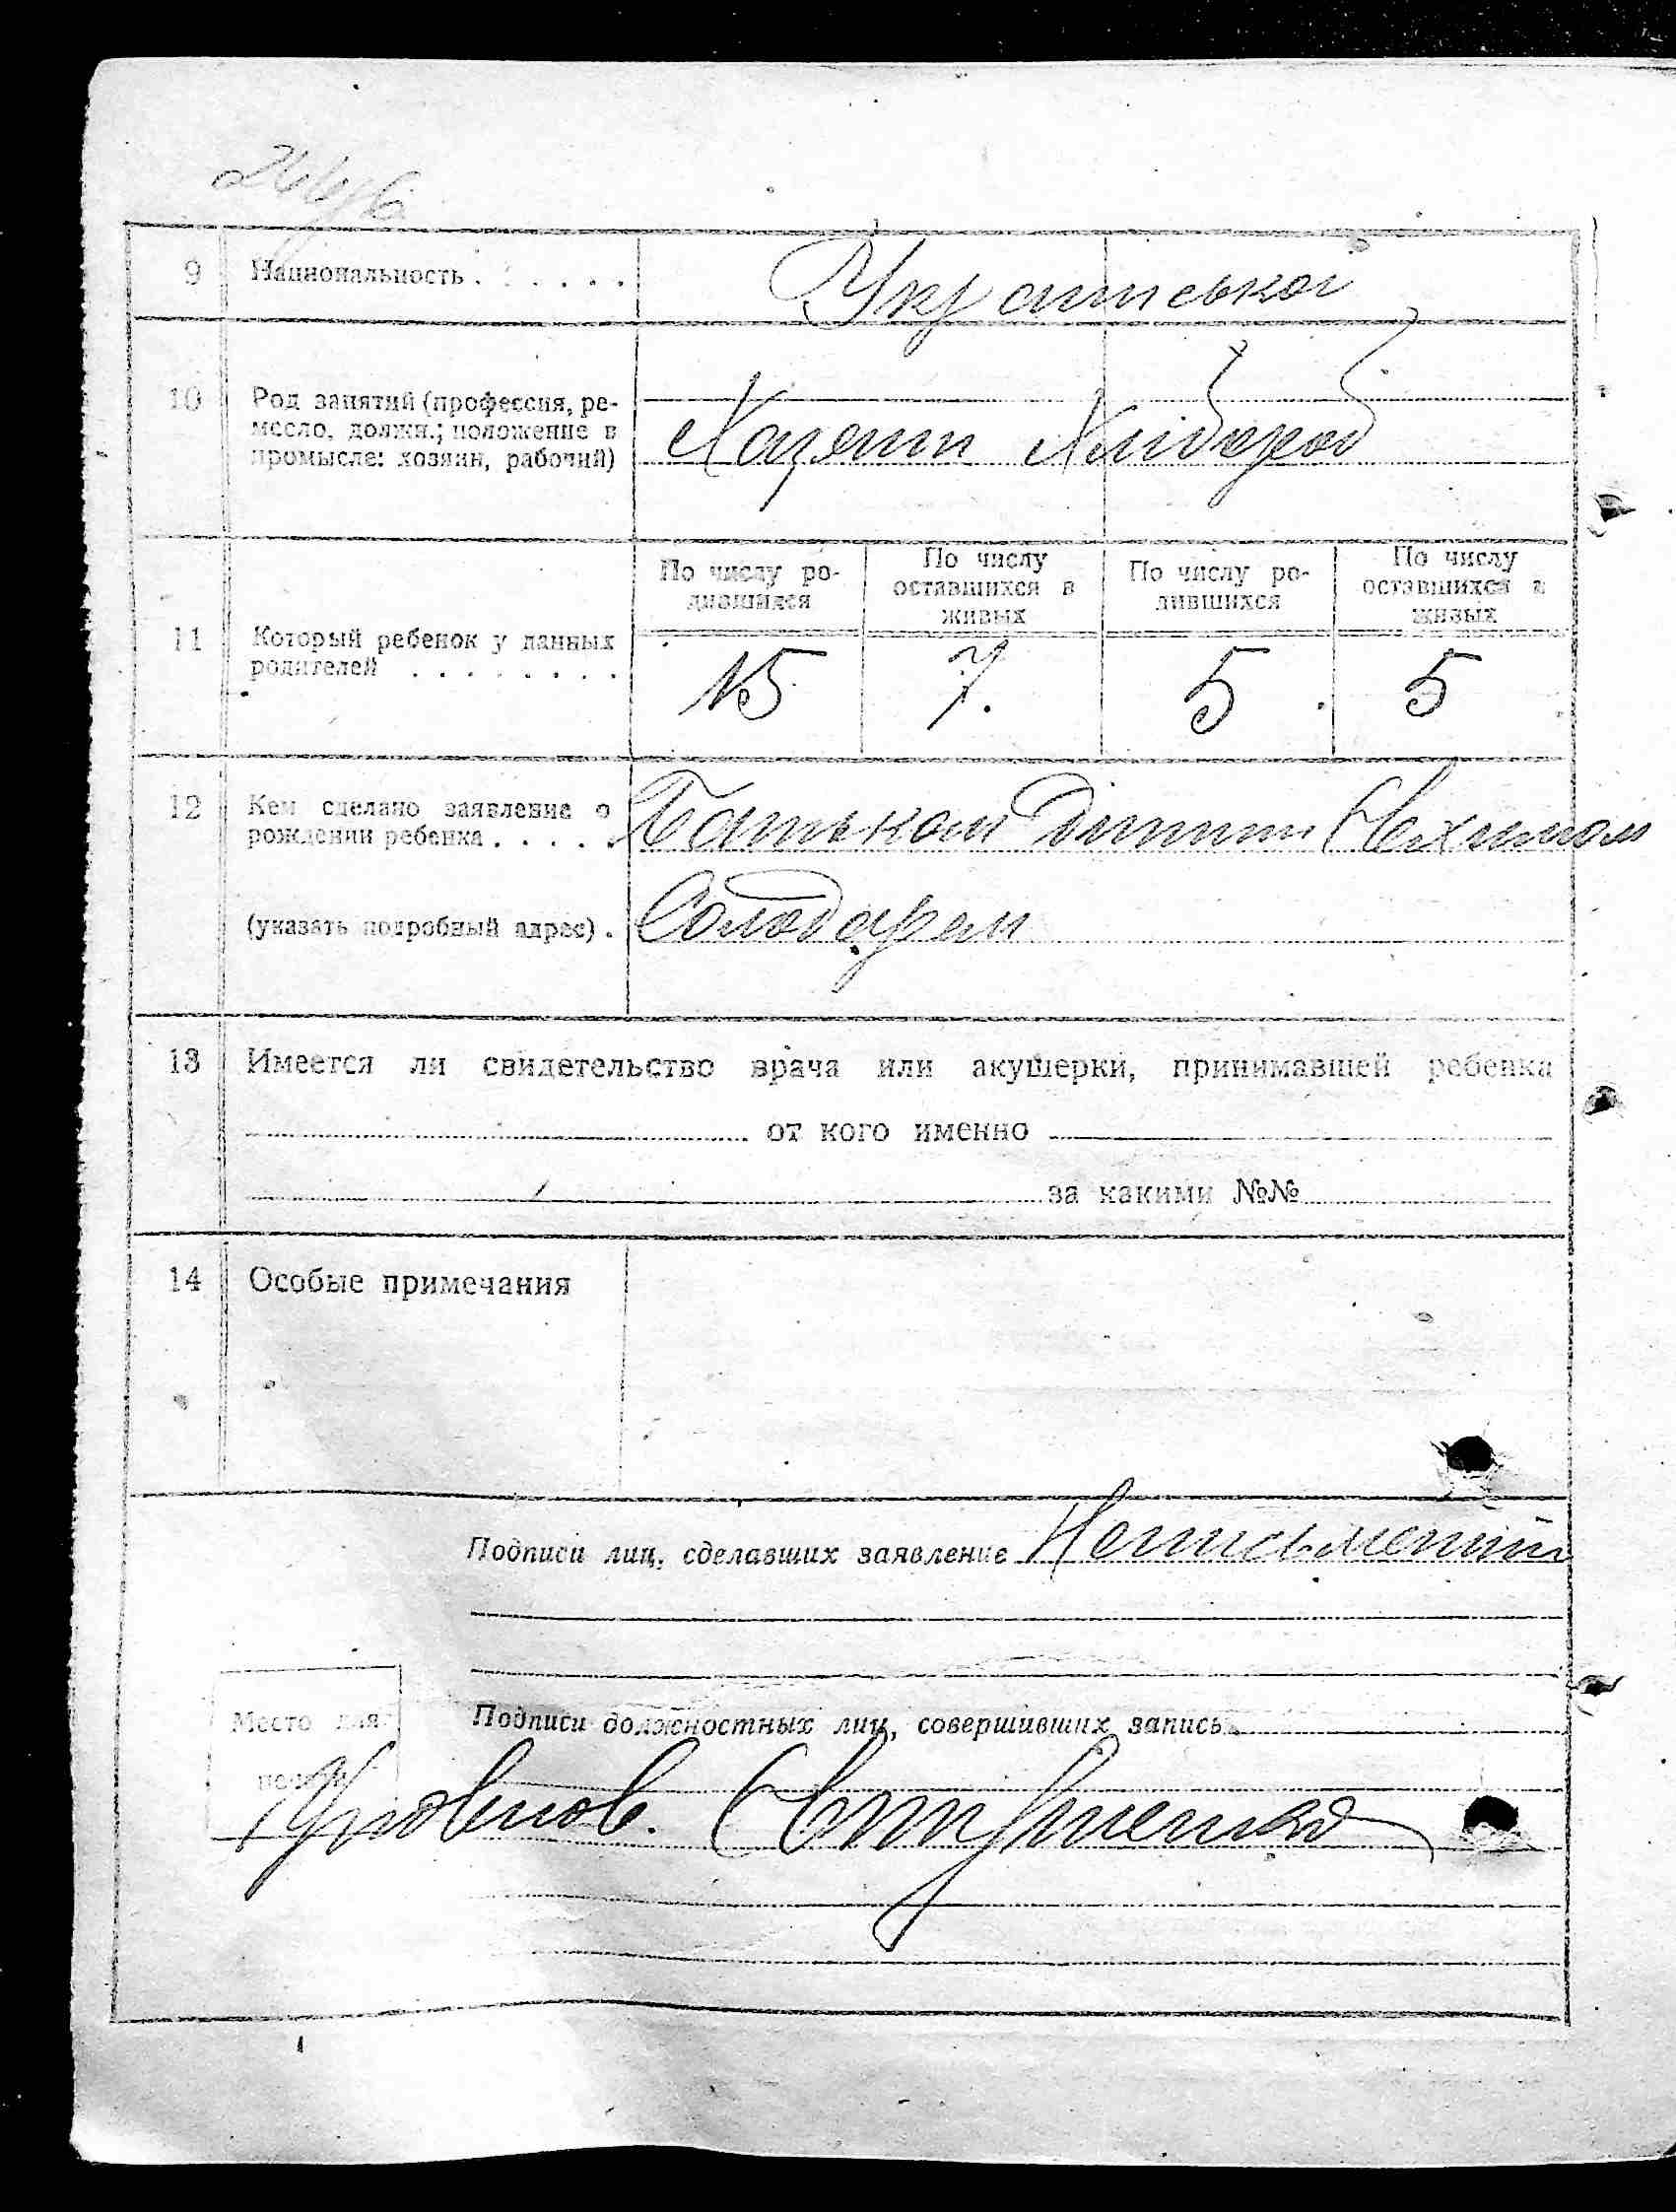 9 Национальность . . . . . .
Української
10 Род занятий (профессия, ре-
месло, должн.; положение в
промысле: хозяин, рабочий)
Хазяин Хлібороб
По числу ро-
дившихся
По числу
оставшихся в
живых
По числу ро-
дившихся
По числу
оставшихся в
живых
11 Который ребенок у данных
родителей . . . . . . . .
15 7. 5 5
12 Кем сделано заявление о
рождении ребенка . . . . .
Батьком
(указать подробный адрес) .
Солодарем
13 Имеется ли свидетельство врача или акушерки, принимавшей ребенка
от кого именно
за какими №№
14 Особые примечания
Подписи лиц, сделавших заявление Неписьменний
Место для
печати
Подписи должностных лиц, совершивших запись